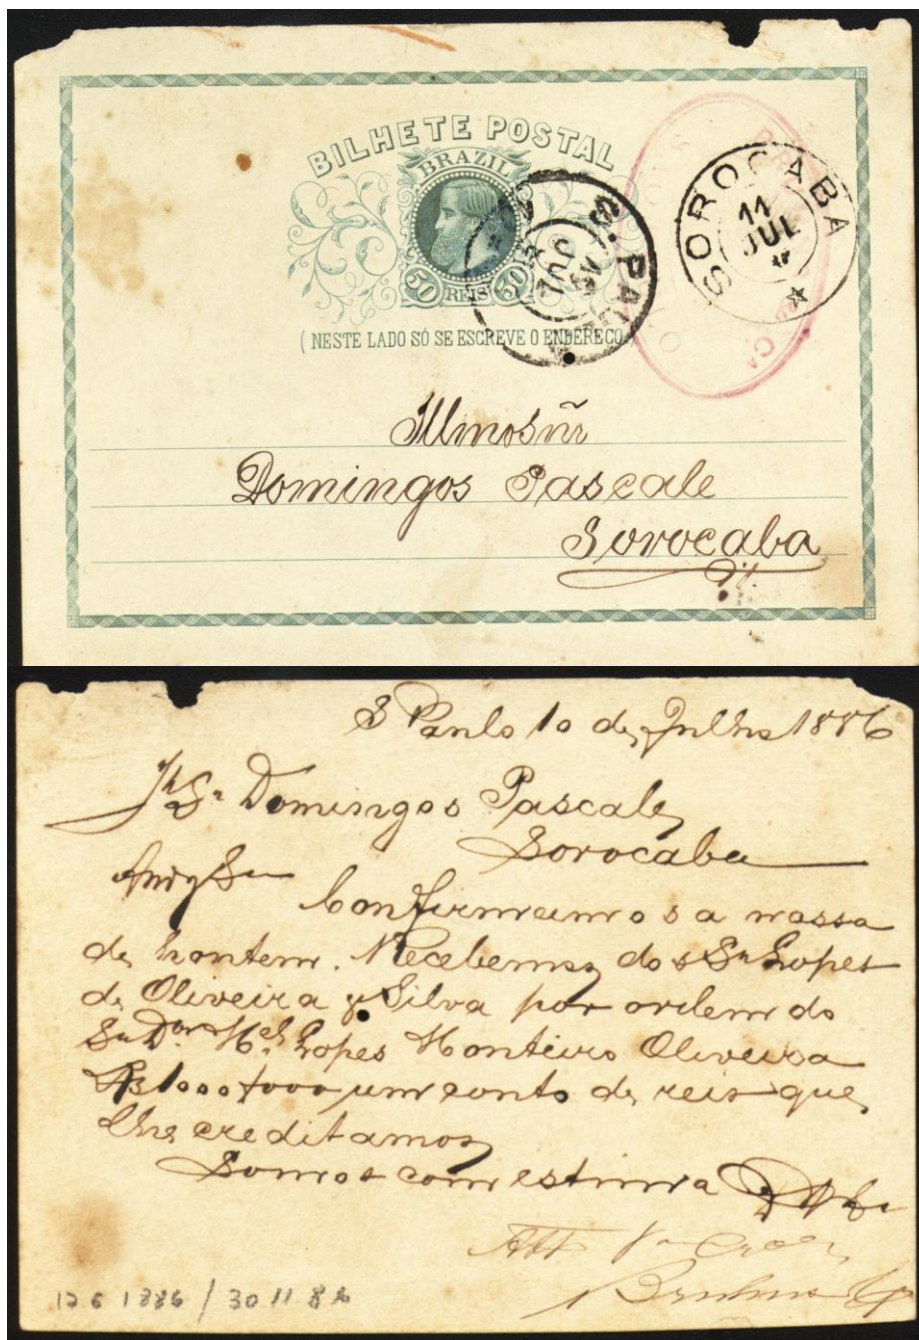 BILHETE POSTAL
BRAZIL
50 REIS 50
(NESTE LADO SÓ SE ESCREVE O ENDEREÇO)
S. PAULO
JUL
SOROCABA
11
JUL
Illmo Sñr
Domingos Pascale
Sorocaba
S Paulo 10 de Julho 1886
Sr Domingos Pascale
Sorocaba
Amº Sr
Confirmamos a nossa
de hontem. Recebemos dos Srs Lopes
de Oliveira & Silva por ordem do
Sr Dor. Mel Lopes Monteiro Oliveira
Rs 1000$000 um conto de reis que
lhe creditamos
Somos com estima
12 6 1886 / 30 11 82